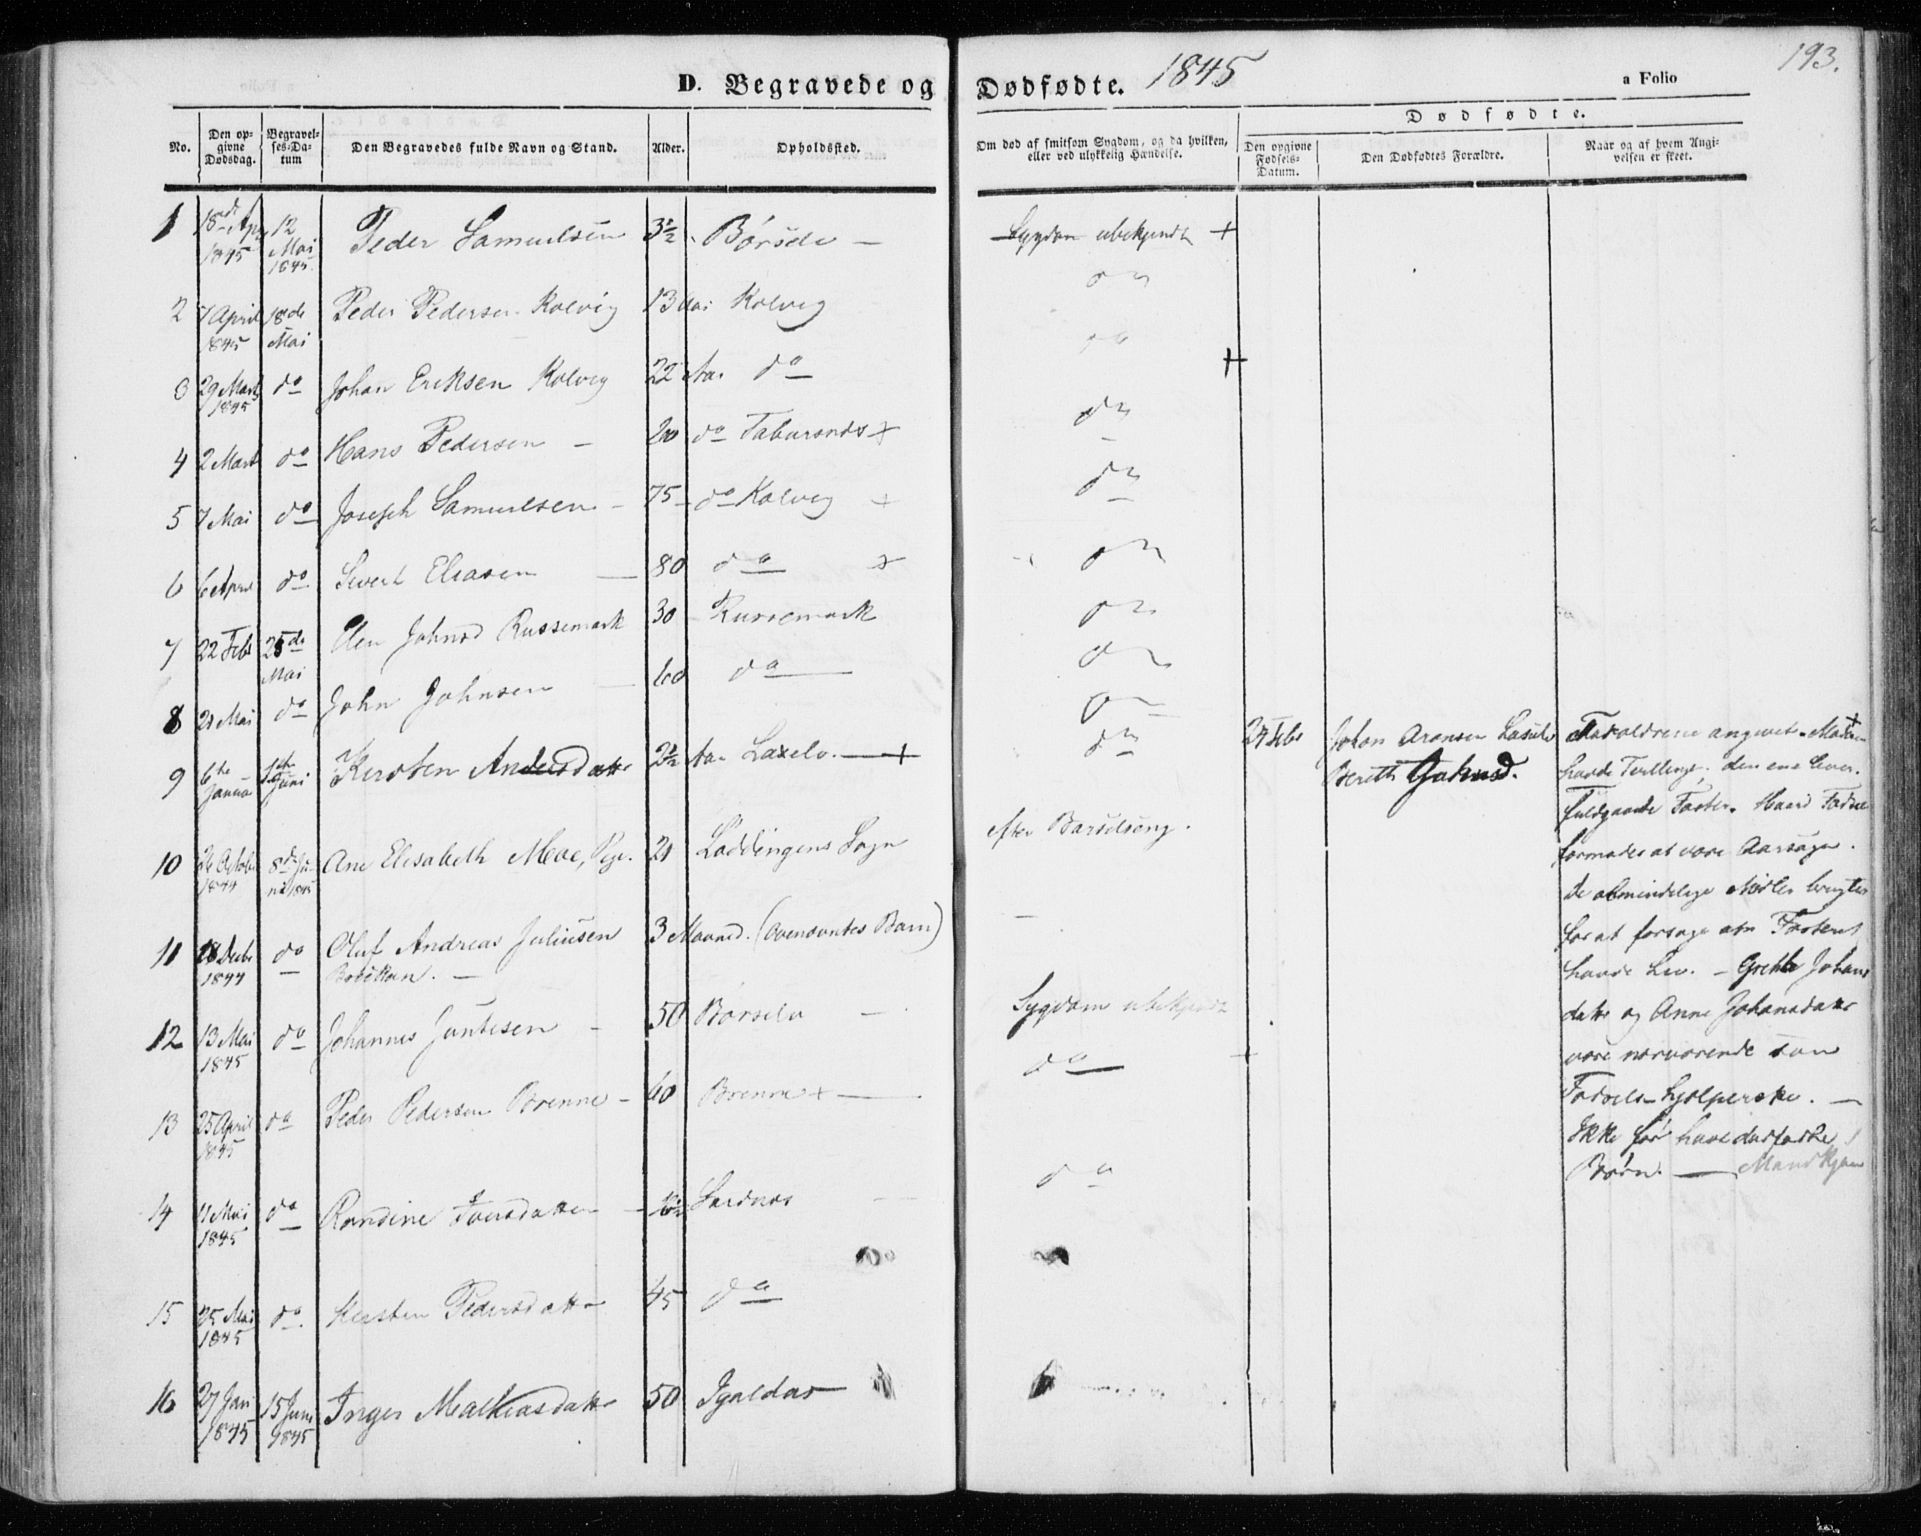 193.
D. Begravede og Dødfødte. 1845
a Folio
Dødfødte.
No.
Den opgivne Dødsdag.
Begravelses-Datum
Den Begravedes fulde Navn og Stand.
Alder.
Opholdssted.
Om død af smitsom Sygdom, og da hvilken, eller ved ulykkelig Hændelse.
Den opgivne Fødsels-Datum.
Den Dødfødtes Forældre.
Naar og af hvem Angivelsen er skeet.
1 18de Apr 1845 12 Mai 1845 Peder Samuelsen 3½ Børsele — Sygdom ubekjendt +
2 7 April 1845 18de Mai Peder Pedersen Kolvig 13 Aar Kolvig do
3 29 Marts 1845 do Johan Eriksen Kolvig 22 Aar do do +
4 2 Marts do Hans Pedersen — 20 do + do
5 7 Mai do Joseph Samuelsen — 75 — do Kolvig + do
6 6 April do Sivert Eliasen — 80 do + do
7 22 Febr 25de Mai Elen Johnsd Russemark 30 — Russemark do
8 21 Mai do John Johnsen — 60 do — do
9 6te Januar 1ste Juni Kirsten Andersdattr 2½ Aar Laxelv. — + do
10 26 Octobr 1844 8de Juni 1845 Ane Elisabeth Moe, Pige. 21 Loddingens Sogn efter Barselseng.
11 28 Decbr 1844 do Oluf Andreas Juliusen 3 Maaned. (Ovennævntes Barn) —
12 13 Mai 1845 do Johannes — 50 Børselv — Sygdom ubekjendt
13 25 April 1845 do Peder Pedersen Brenne — 60 Brenne + — do +
14 11 Mai 1845 do Iversdatter do
15 25 Mai 1845 do Kirsten Pedersdattr 45 do
16 27 Jan 1845 15 Juni 1845 Inger Mathiasdattr 50 Igaldas
27 Febr Johan Aronsen
Bereth Johnsd.
Forældrene angivet. Moderen
havde Tvillinge, den ene lever.
fuldgaaede Foster. Haard Fødsel
formodes at være Aarsagen.
De almindelige Midler brugtes
for at forsøge om Fosteret
havde Liv. — Grethe Johans
dattr og Anne Johansdattr
vare nærværende som
Fødsels-hjelperske. —
Ikke før have dødfødte
Børn. — Mandkjøn